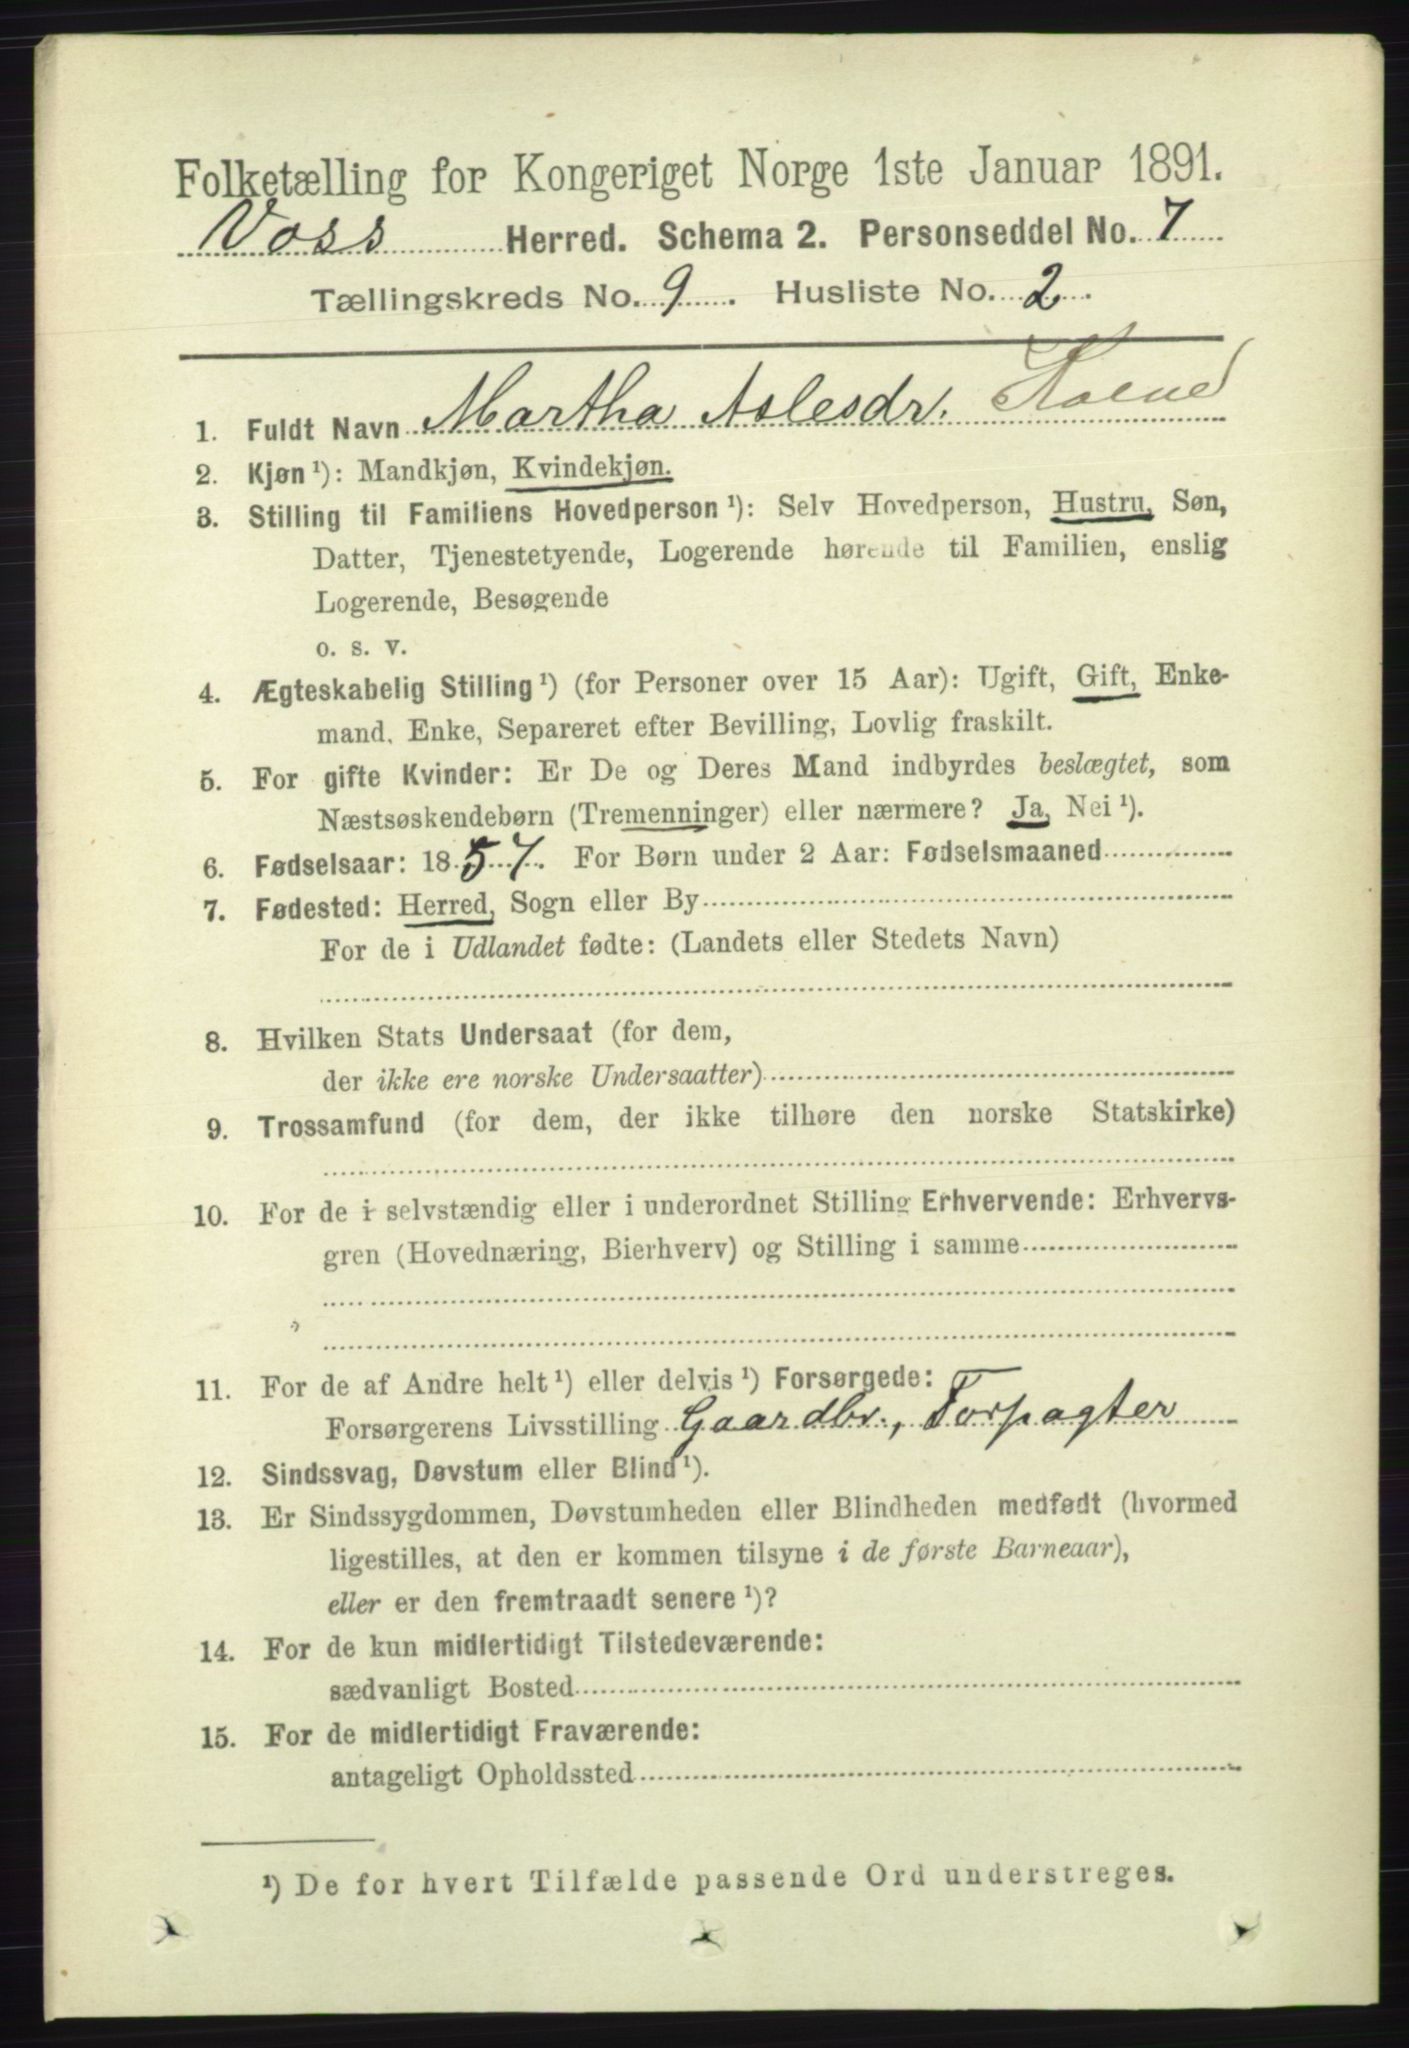 Folketælling for Kongeriget Norge 1ste Januar 1891.
Voss Herred. Schema 2. Personseddel No. 7
Tællingskreds No. 9. Husliste No. 2.
1. Fuldt Navn Martha Aslesdr.
2. Kjøn ¹): Mandkjøn, Kvindekjøn.
3. Stilling til Familiens Hovedperson ¹): Selv Hovedperson, Hustru, Søn,
Datter, Tjenestetyende, Logerende hørende til Familien, enslig
Logerende, Besøgende
o. s. v.
4. Ægteskabelig Stilling ¹) (for Personer over 15 Aar): Ugift, Gift, Enke-
mand, Enke, Separeret efter Bevilling, Lovlig fraskilt.
5. For gifte Kvinder: Er De og Deres Mand indbyrdes beslægtet, som
Næstsøskendebørn (Tremenninger) eller nærmere? Ja, Nei ¹).
6. Fødselsaar: 1857. For Børn under 2 Aar: Fødselsmaaned
7. Fødested: Herred, Sogn eller By
For de i Udlandet fødte: (Landets eller Stedets Navn)
8. Hvilken Stats Undersaat (for dem,
der ikke ere norske Undersaatter)
9. Trossamfund (for dem, der ikke tilhøre den norske Statskirke)
10. For de i selvstændig eller i underordnet Stilling Erhvervende: Erhvervs-
gren (Hovednæring, Bierhverv) og Stilling i samme
11. For de af Andre helt ¹) eller delvis ¹) Forsørgede:
Forsørgerens Livsstilling Gaardbr., Forpagter
12. Sindssvag, Døvstum eller Blind ¹).
13. Er Sindssygdommen, Døvstumheden eller Blindheden medfødt (hvormed
ligestilles, at den er kommen tilsyne i de første Barneaar),
eller er den fremtraadt senere ¹)?
14. For de kun midlertidigt Tilstedeværende:
sædvanligt Bosted
15. For de midlertidigt Fraværende:
antageligt Opholdssted
¹) De for hvert Tilfælde passende Ord understreges.